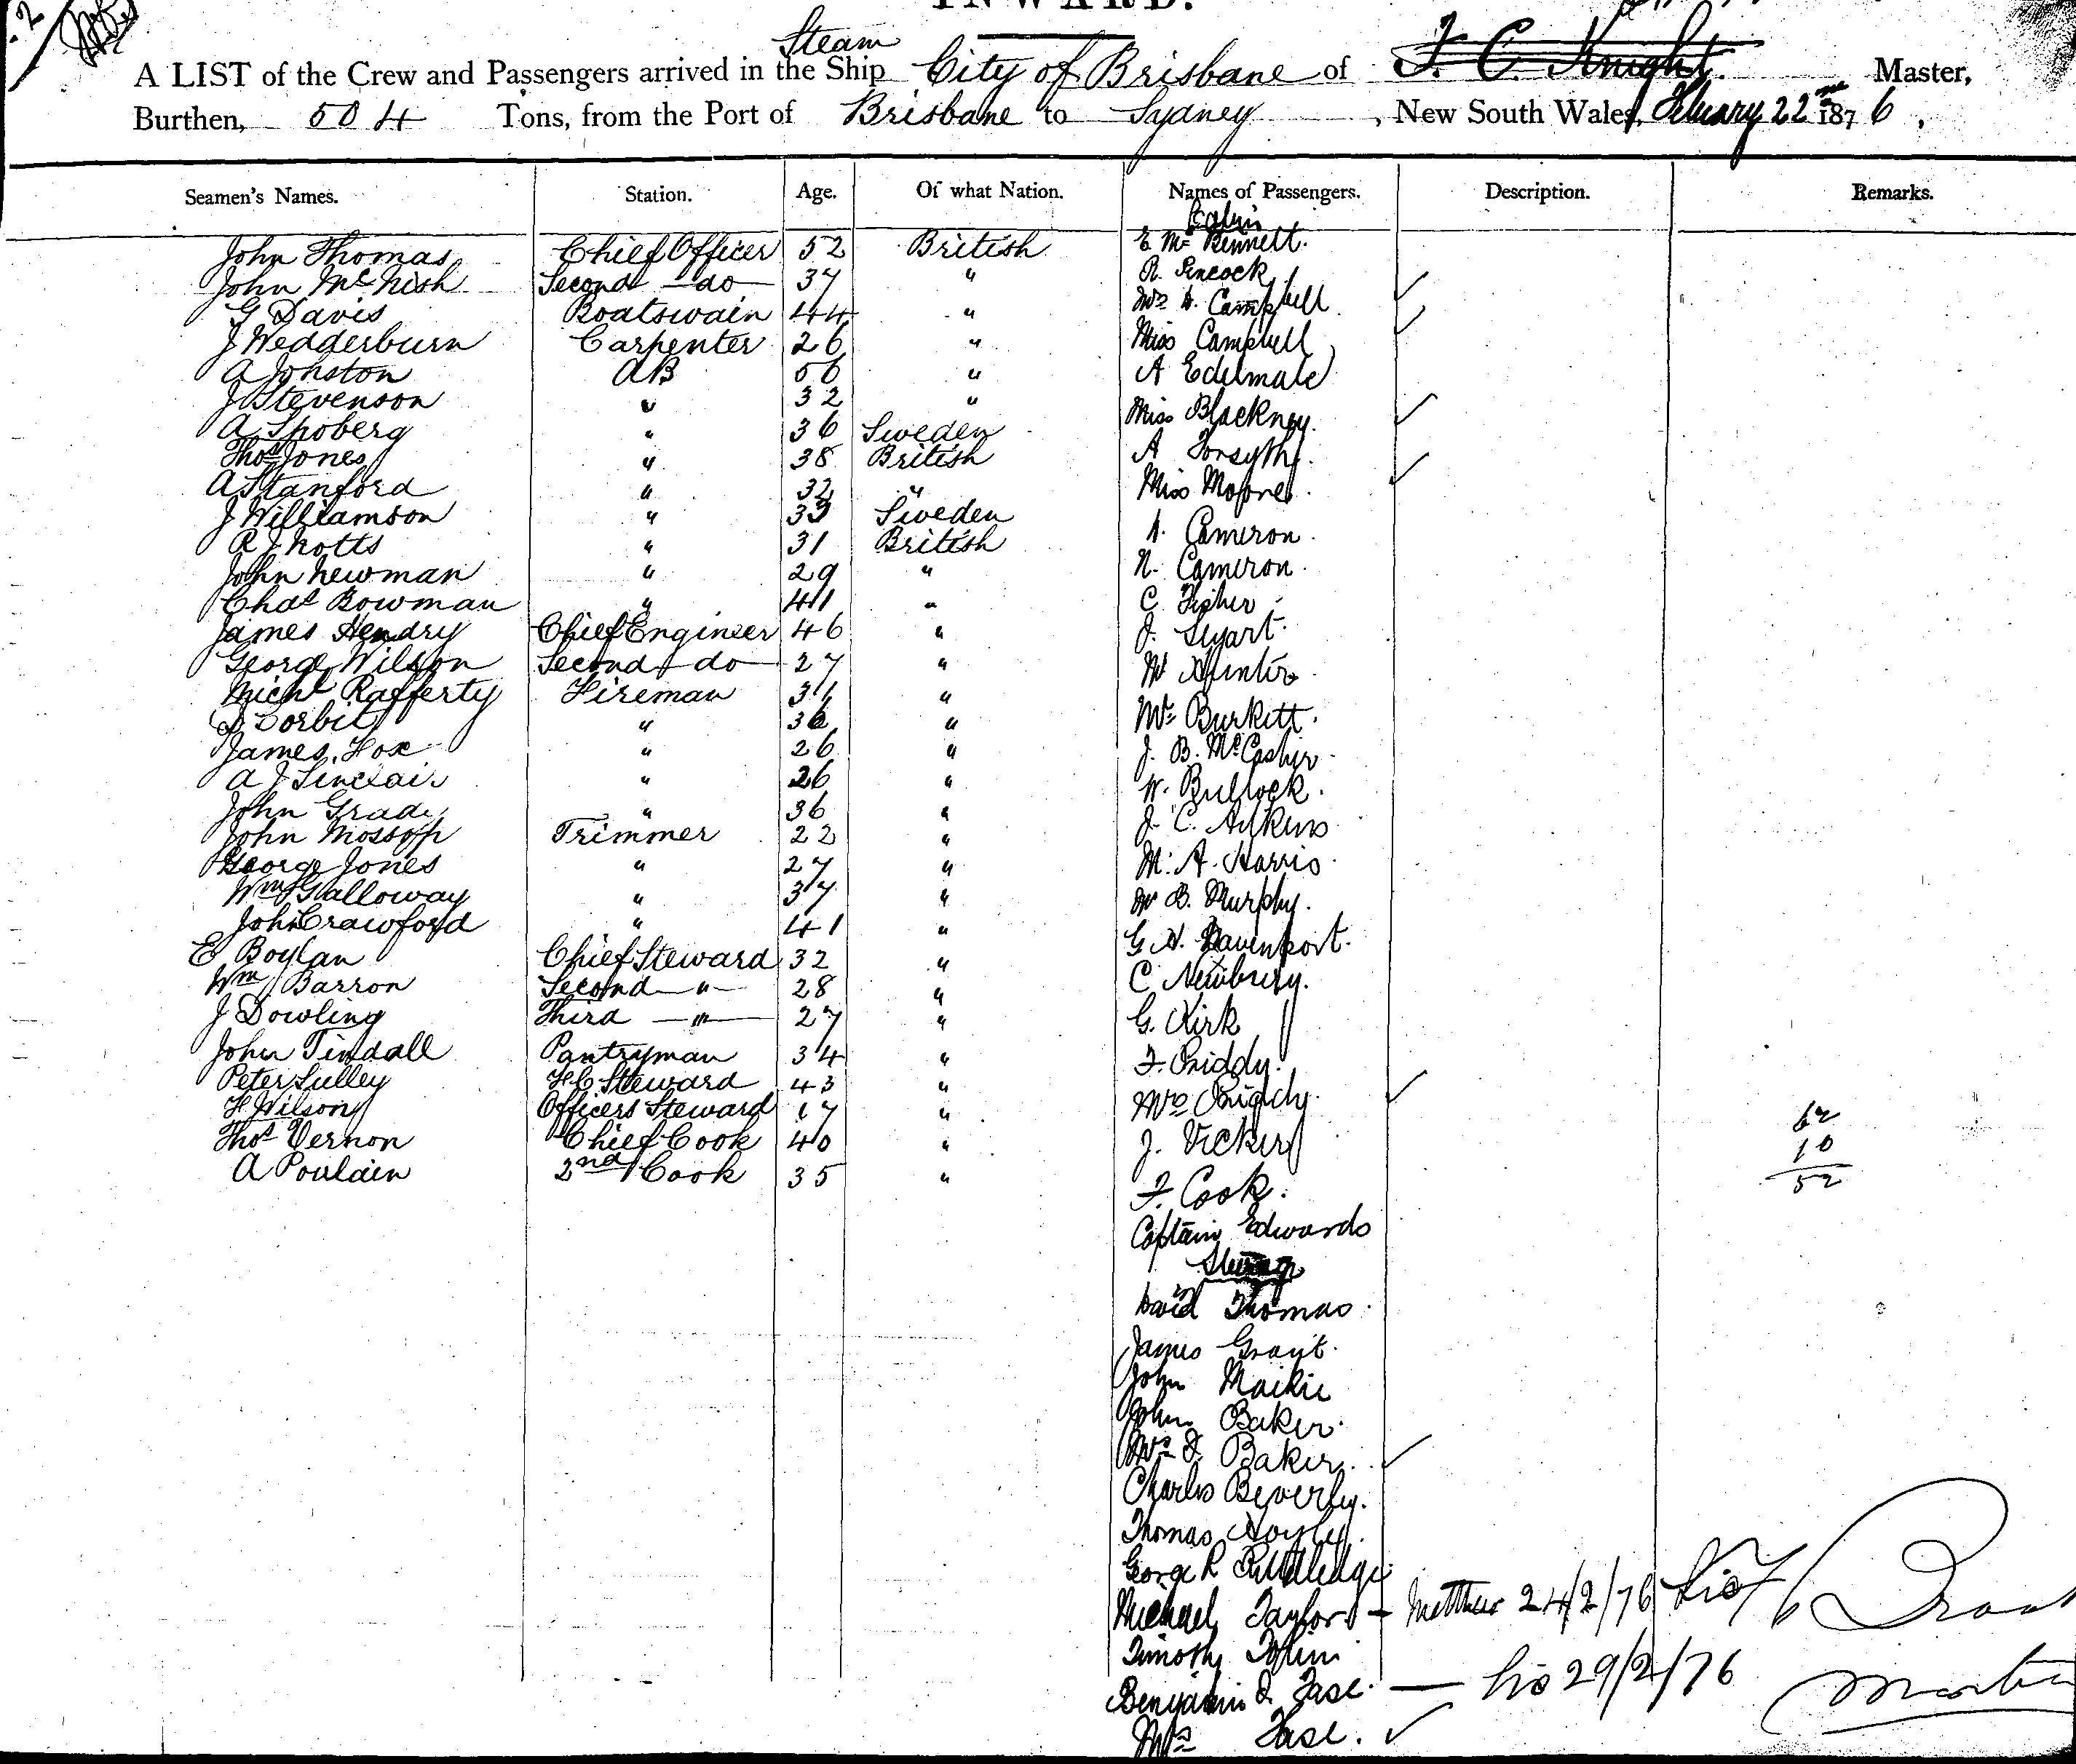 INWARD.
Steam
A LIST of the Crew and Passengers arrived in the Ship City of Brisbane of F. C. Knight Master,
Burthen, 504 Tons, from the Port of Brisbane to Sydney, New South Wales, February 22nd 1876,
Seamen's Names. Station. Age. Of what Nation. Names of Passengers. Description. Remarks.
Cabin
John Thomas Chief Officer 52 British E. Mc Bennett.
John McNish Second do 37 " R. Pencock
G Davis Boatswain 44 " Mrs A. Campbell
J Wedderburn Carpenter 26 " Miss Campbell
A Jonston AB 56 " A
J Stevenson " 32 " Miss Blackney.
A Shoberg " 36 Sweden A Forsyth.
Thos Jones " 38 British
A Stanford " 32 " Miss
J Williamson " 33 Sweden A. Cameron.
R J Kotts " 31 British N. Cameron.
John Newman " 29 " C. Fisher
Chas Bowman " 41 " J.
James Hendry Chief Engineer 46 "
George Wilson Second do 27 " W
Michl Rafferty Fireman 31 " Mr Burkitt.
J Corbit " 36 " J. B.
James Fox " 26 " W. Bullock.
A J Sinclair " 26 " J. C. Aitkins
John Grady " 36 "
John Mossop Trimmer 22 " M. A. Harris.
George Jones " 27 " W B. Murphy.
Wm Galloway " 37 " G. H. Davenport.
John Crawford " 41 "
E Boylan Chief Steward 32 " C Newbury.
Wm Barron Second " 28 " G. Kirk
J Dowling Third " 27 " F. Priddy.
John Tindall Pantryman 34 " Mrs Priddy.
Peter Lulley F.C. Steward 43 " J. Vickery
H Wilson Officers Steward 17 " 62
Thos Vernon Chief Cook 40 " 10
A Poulain 2nd Cook 35 " F. Cook. 52
Captain Edwards
Steerage
David Thomas.
James Grant.
John Mackie
John Baker.
Mrs J. Baker.
Charles Beverley.
Thomas Hoyle
George R Ruttledge
Michael Taylor - 24/2/76
Timothy Tobin
Benjamin J. Fase. - 29/2/76
Mrs Fase.